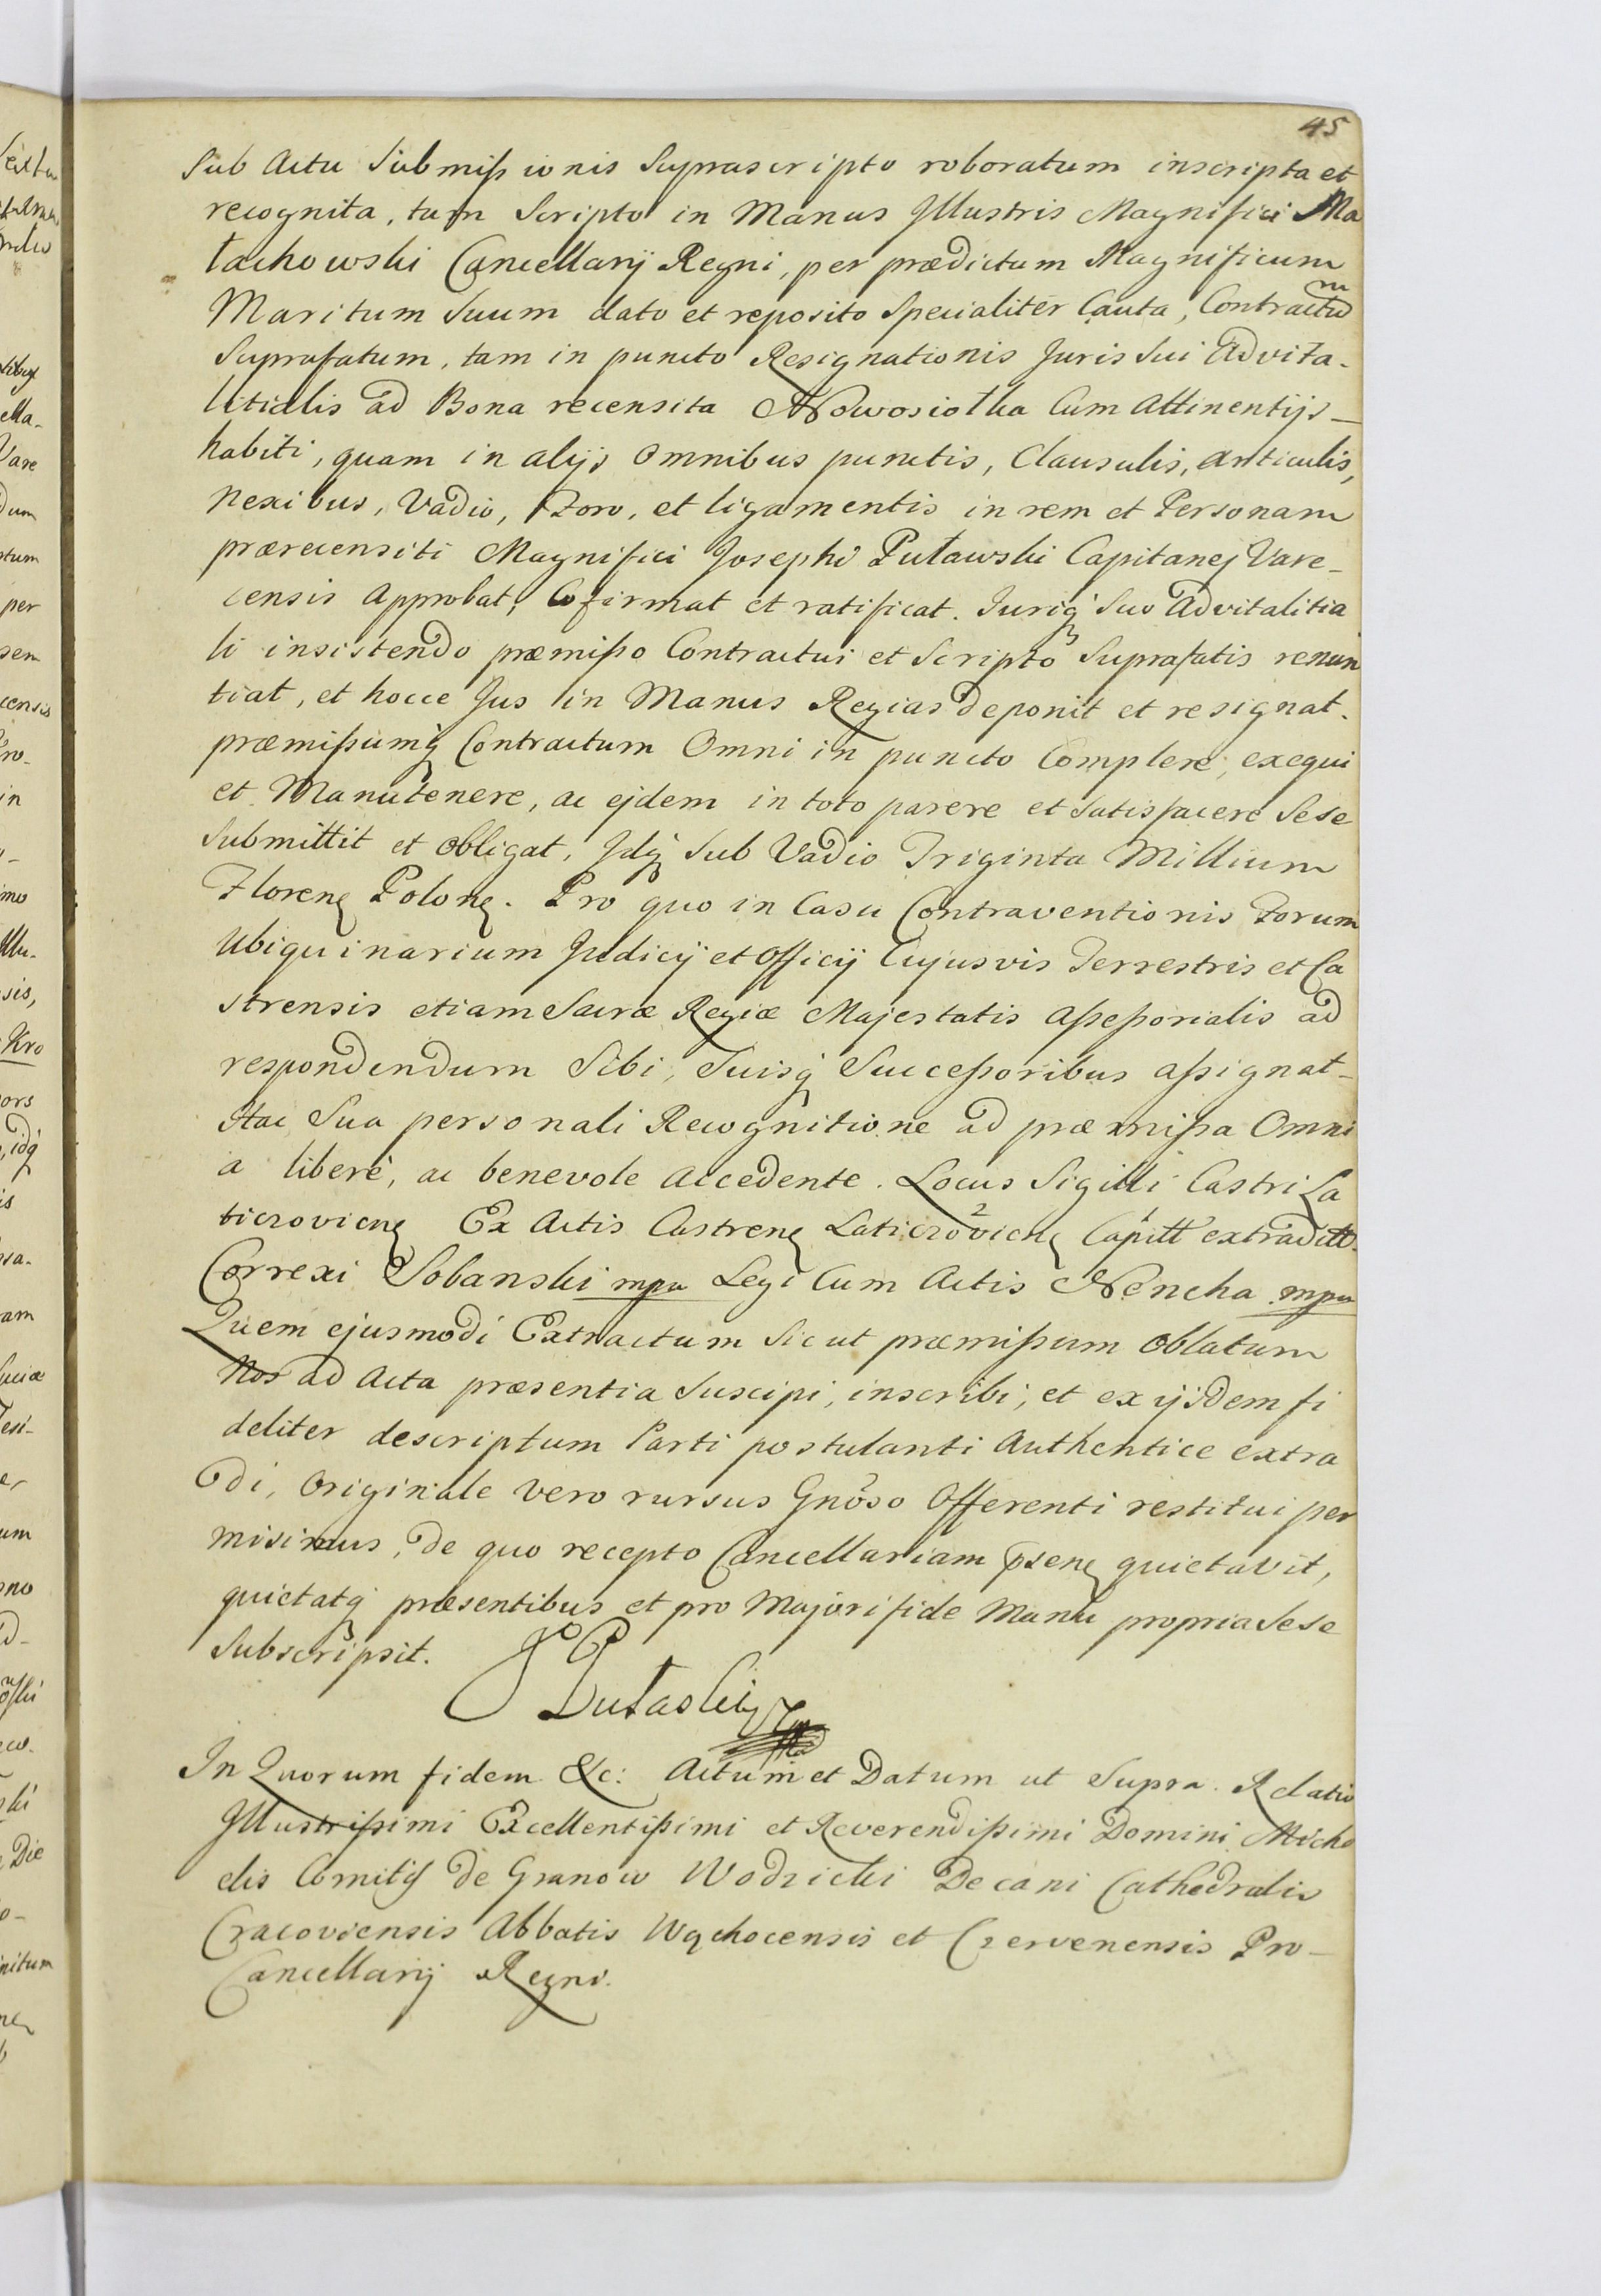 45
Sub Actu Submissionis Suprascripto roboratum inscripta et
recognita, tum Scripto in Manus Illustris Magnifici Ma
łachowski Cancellarij Regni, per prædictum Magnificum
Maritum Suum dato et reposito Specialiter Cauta, Contractum
Suprafatum, tam in puncto Resignationis Juris Sui Advita-
litialis ad Bona recensita Nowosiołka Cum Attinentijs
habiti, quam in alijs Omnibus punctis, Clausulis, Articulis,
Nexibus, Vadio, Foro, et ligamentis in rem et Personam
prærecensiti Magnifici Josephi Puławski Capitanej Vare-
censis Approbat, Cofirmat et ratificat. Juriq Suo Advitalitia
li insistendo præmisso Contractui et Scripto Suprafatis renun
tiat, et hocce Jus in Manus Regias deponit et resignat.
præmissumq Contractum Omni in puncto Complere, exequi
et Manutenere, ac ejdem in toto parere et Satisfacere Sese
Submittit et obligat, Idq Sub Vadio Triginta Millium
Floren Polon. Pro quo in Casu Contraventionis Forum
Ubiquinarium Judicij et Officij Cujusvis Terrestris et Ca
strensis etiam Sacræ Regiæ Majestatis Assessorialis ad
respondendum Sibi, Suisq Successoribus assignat-
Hac Sua personali Recognitione ad præmissa Omni
a liberè, ac benevole Accedente. Locus Sigilli Castri La
ticzovien Ex Actis Castren Laticzovien Capitt extradit.
Correxi Sobanski mpa Legi Cum Actis Nencha mpa
Quem ejusmodi Extractum Sicut præmissum Oblatum
Nos ad Acta præsentia Suscipi, inscribi, et ex ijsdem fi
deliter descriptum Parti postulanti Authentice extra
di, Originale Vero rursus Gnoso Offerenti restitui per
misimus, de quo recepto Cancellariam psen quietavit,
quietatq præsentibus et pro Majori fide Manu propria Sese
Subscripsit.
J Pułaski
In Quorum fidem &c: Actum et Datum ut Supra. Relatio
Illustrissimi Excellentissimi et Reverendissimi Domini Micha
elis Comitis de Granow Wodzicki Decani Cathedralis
Cracoviensis Abbatis Wąchocensis et Czervenensis Pro-
Cancellarij Regni.